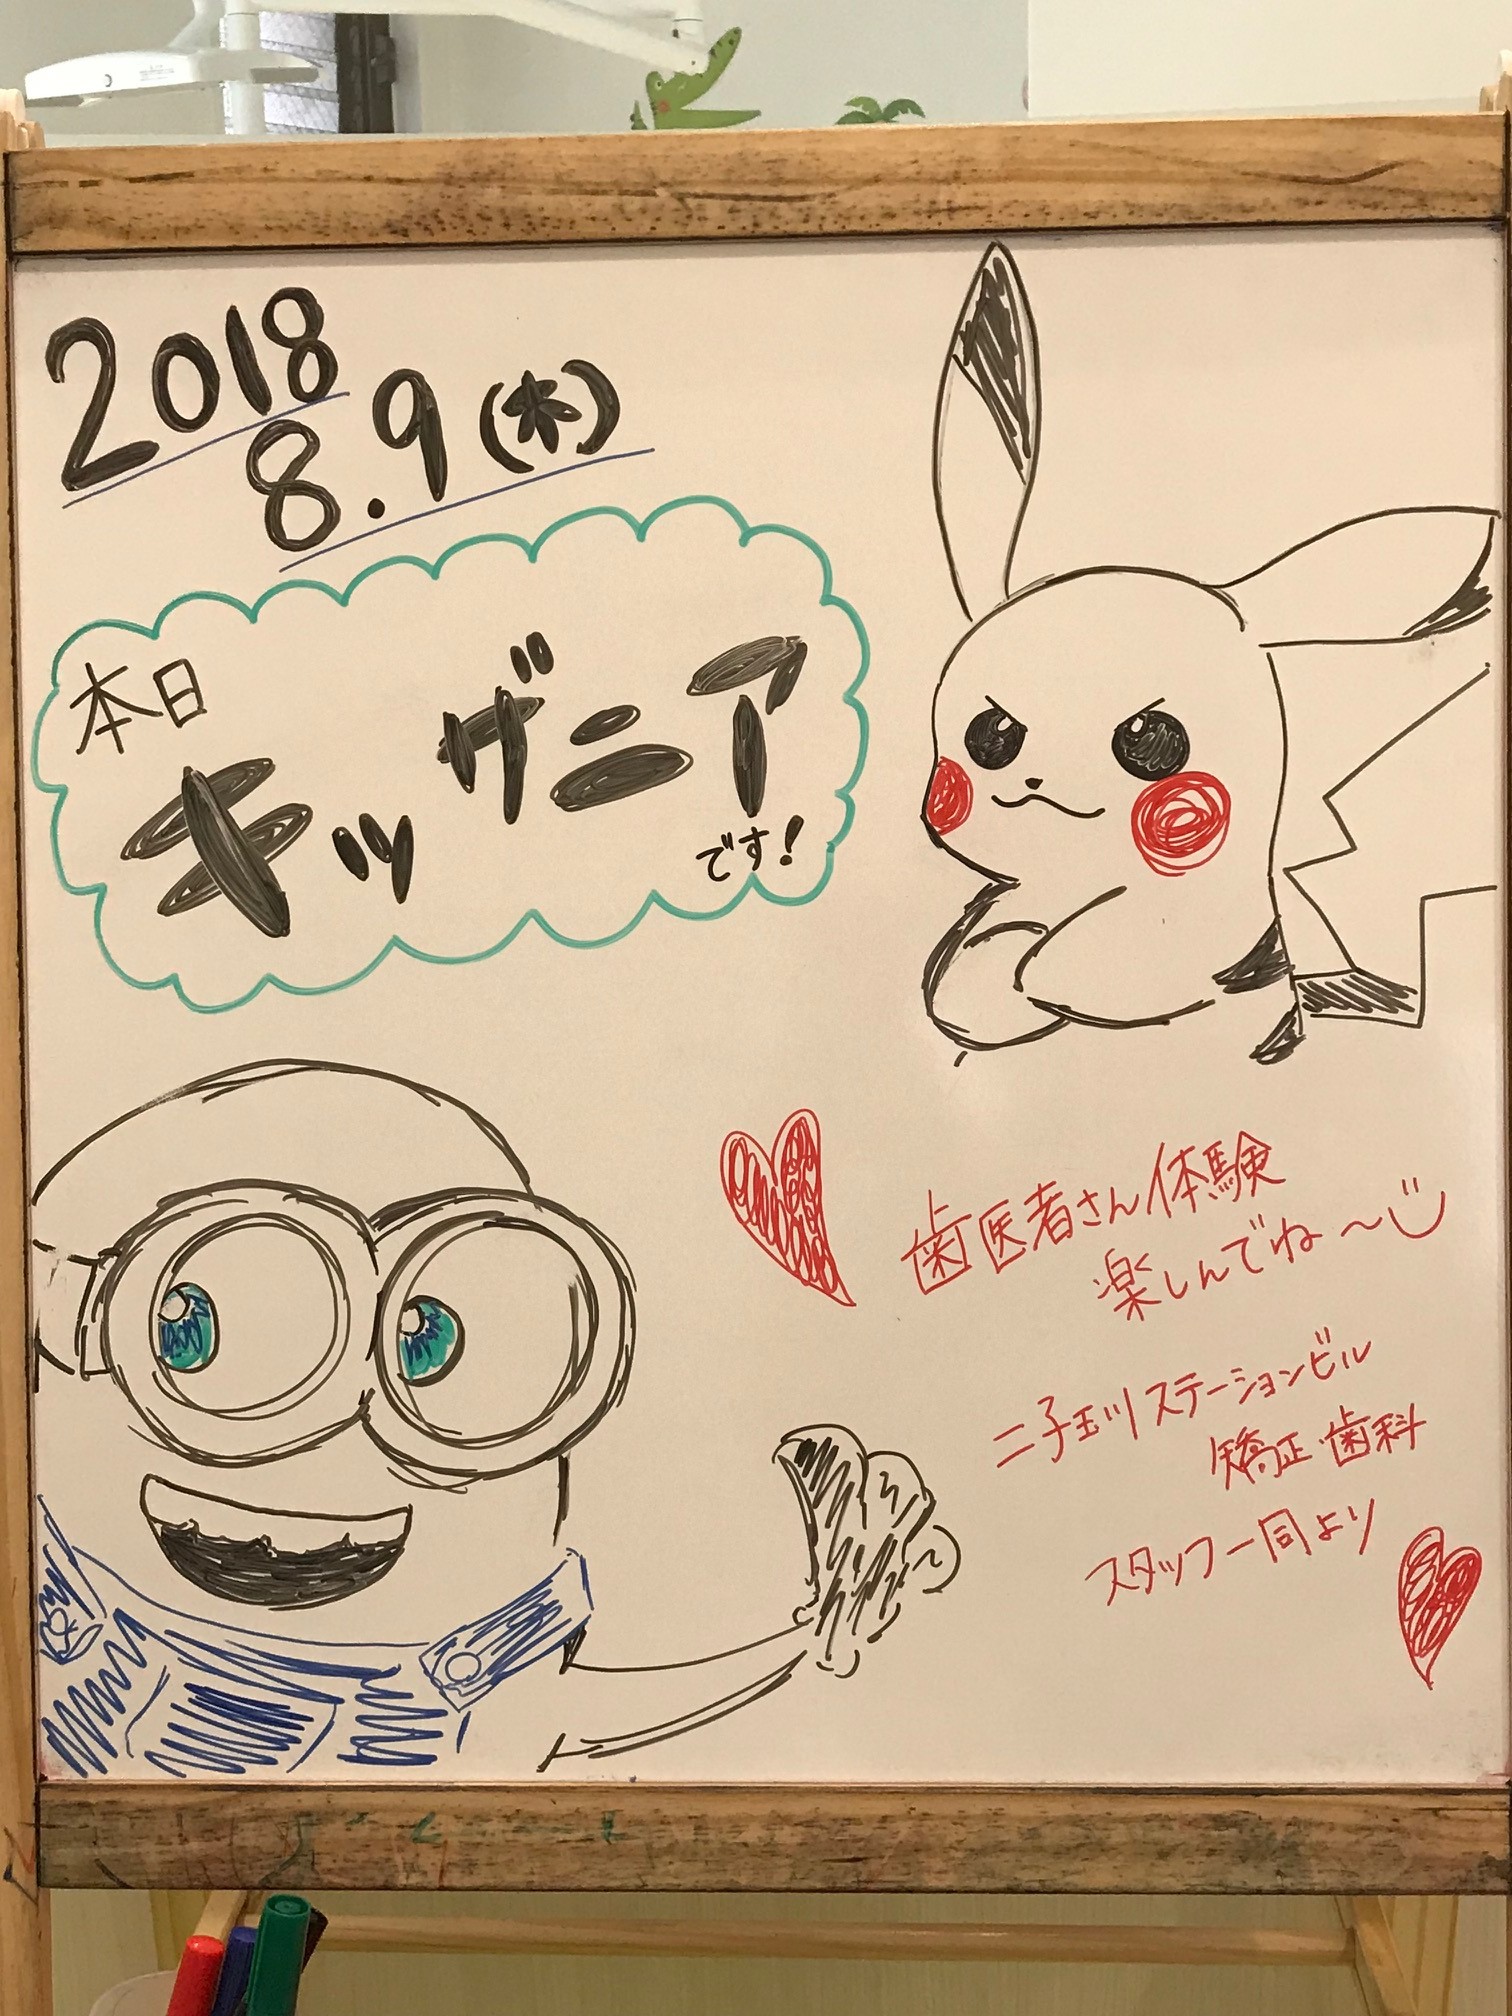 2018
8.9(木)
本日
キッザニア
です!
歯医者さん体験
楽しんでね〜
二子玉川ステーションビル
矯正・歯科
スタッフ一同より